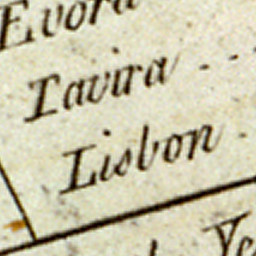 Evora
Tavira - - -
Lisbon -
Ye